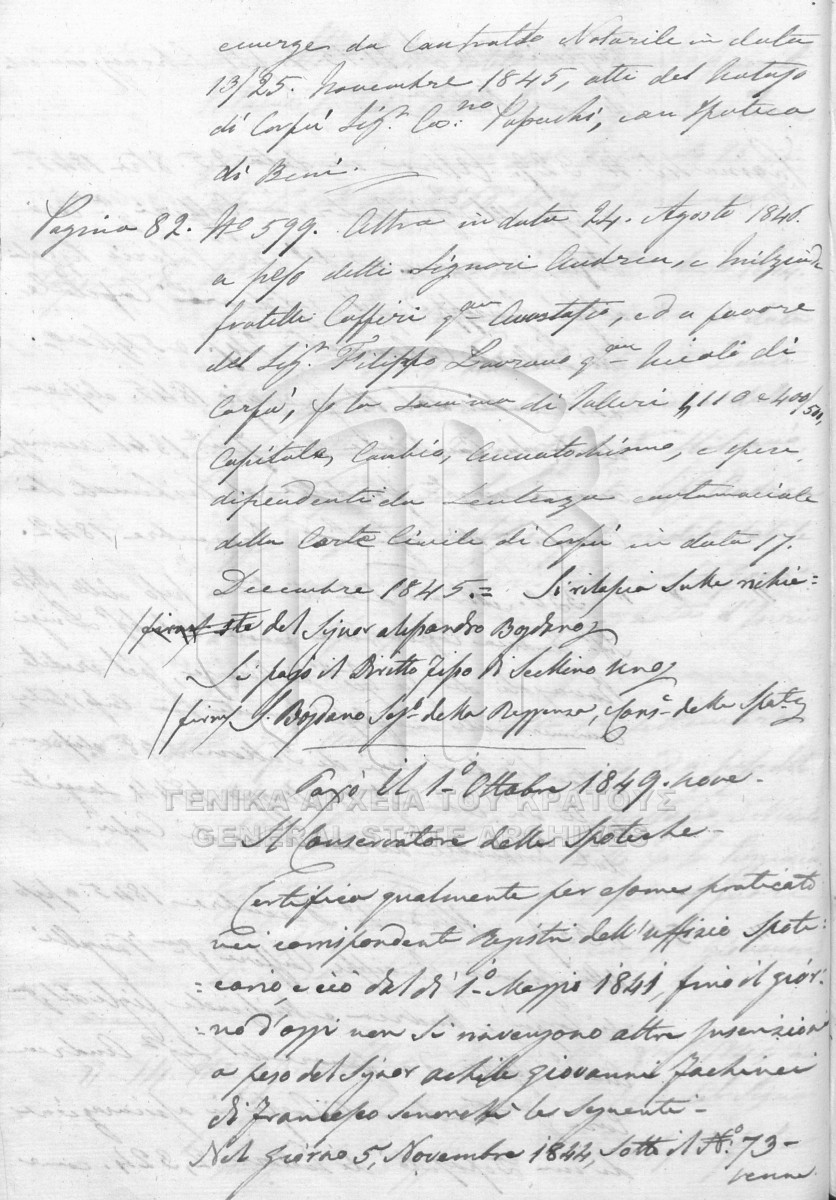 emerge da Contratto Notarile in data
13/25. Novembre 1845, atti del Notajo
di Corfù Sigr. Papachi, con Ipoteca
di Beni.
Pagina 82. No 599. Altra in data 24. Agosto 1846.
a peso delli Signori Andrea, e
fratelli Caffiri qm Anastasio, ed a favore
del Sigr. Filippo Lavrano qm Nicolò di
Corfù, per la summa di Talleri 110 e 400/500,
Capitale, Cambio, e spese,
dipendenti da sentenza contumaciale
della Corte Civile di Corfù in data 17.
Decembre 1845.= Si rilascia sulle richie=
ste del Signor Alessandro Bogdano
Si pagò il Diritto fisso di Scellino uno
(firm) Bogdano Segr. della Reggenza, Cons. delle Ipot.
Paxò Il 1o Ottobre 1849. nove.
Il Conservatore delle Ipoteche
Certifica qualmente per esame praticato
nei corrispondenti Registri dell'uffizio Ipote=
=cario, e ciò dal dì 1o Maggio 1841, fino il gior=
=no d'oggi non si rinvengono altre Inscrizioni
a peso del Signor Achile Giovanni
di Francesco senonchè le seguenti.
Nel giorno 5, Novembre 1844, sotto il No. 73
venne
ΓΕΝΙΚΑ ΑΡΧΕΙΑ ΤΟΥ ΚΡΑΤΟΥΣ
GENERAL STATE ARCHIVES